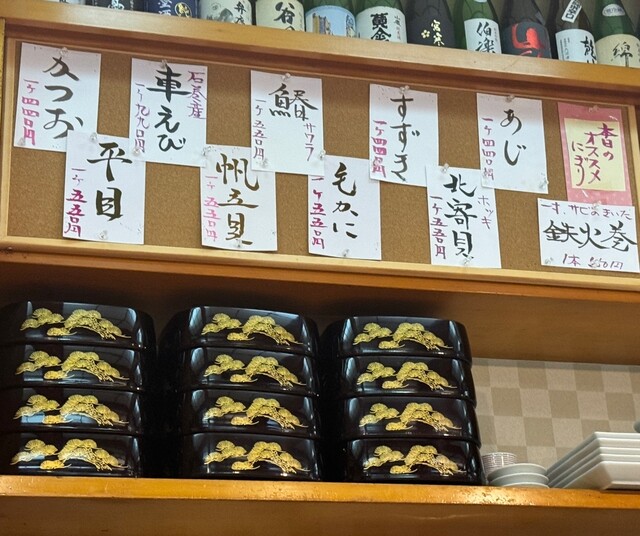 本日の
オススメ
にぎり
あじ
一ケ四四〇円
すずき
一ケ四四〇円
鰆
サワラ
一ケ五五〇円
石巻産
車えび
一ケ九九〇円
かつお
一ケ四四〇円
一寸、サビのきいた
鉄火巻
1本
北寄貝
ホッキ
一ケ五五〇円
毛かに
一ケ五五〇円
帆立貝
一ケ五五〇円
平目
一ケ五五〇円
黄金
伯楽
綿